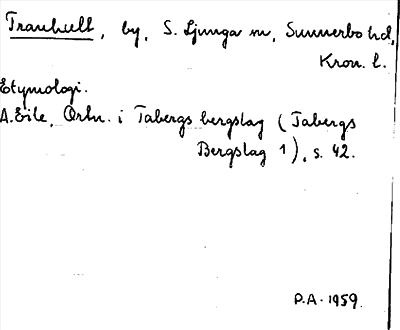 Tranhult, by, S. Ljunga sn, Sunnerbo hd,
Kron. l.
Etymologi.
A. Eile, Ortn. i Tabergs bergslag (Tabergs
Bergslag 1), s. 42.
P.A. 1959.